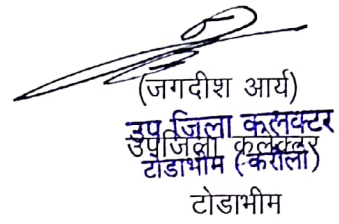 (जगदीश आर्य)
उप जिला कलक्टर
उपजिला कलेक्टर
टोडाभीम (करौली)
टोडाभीम